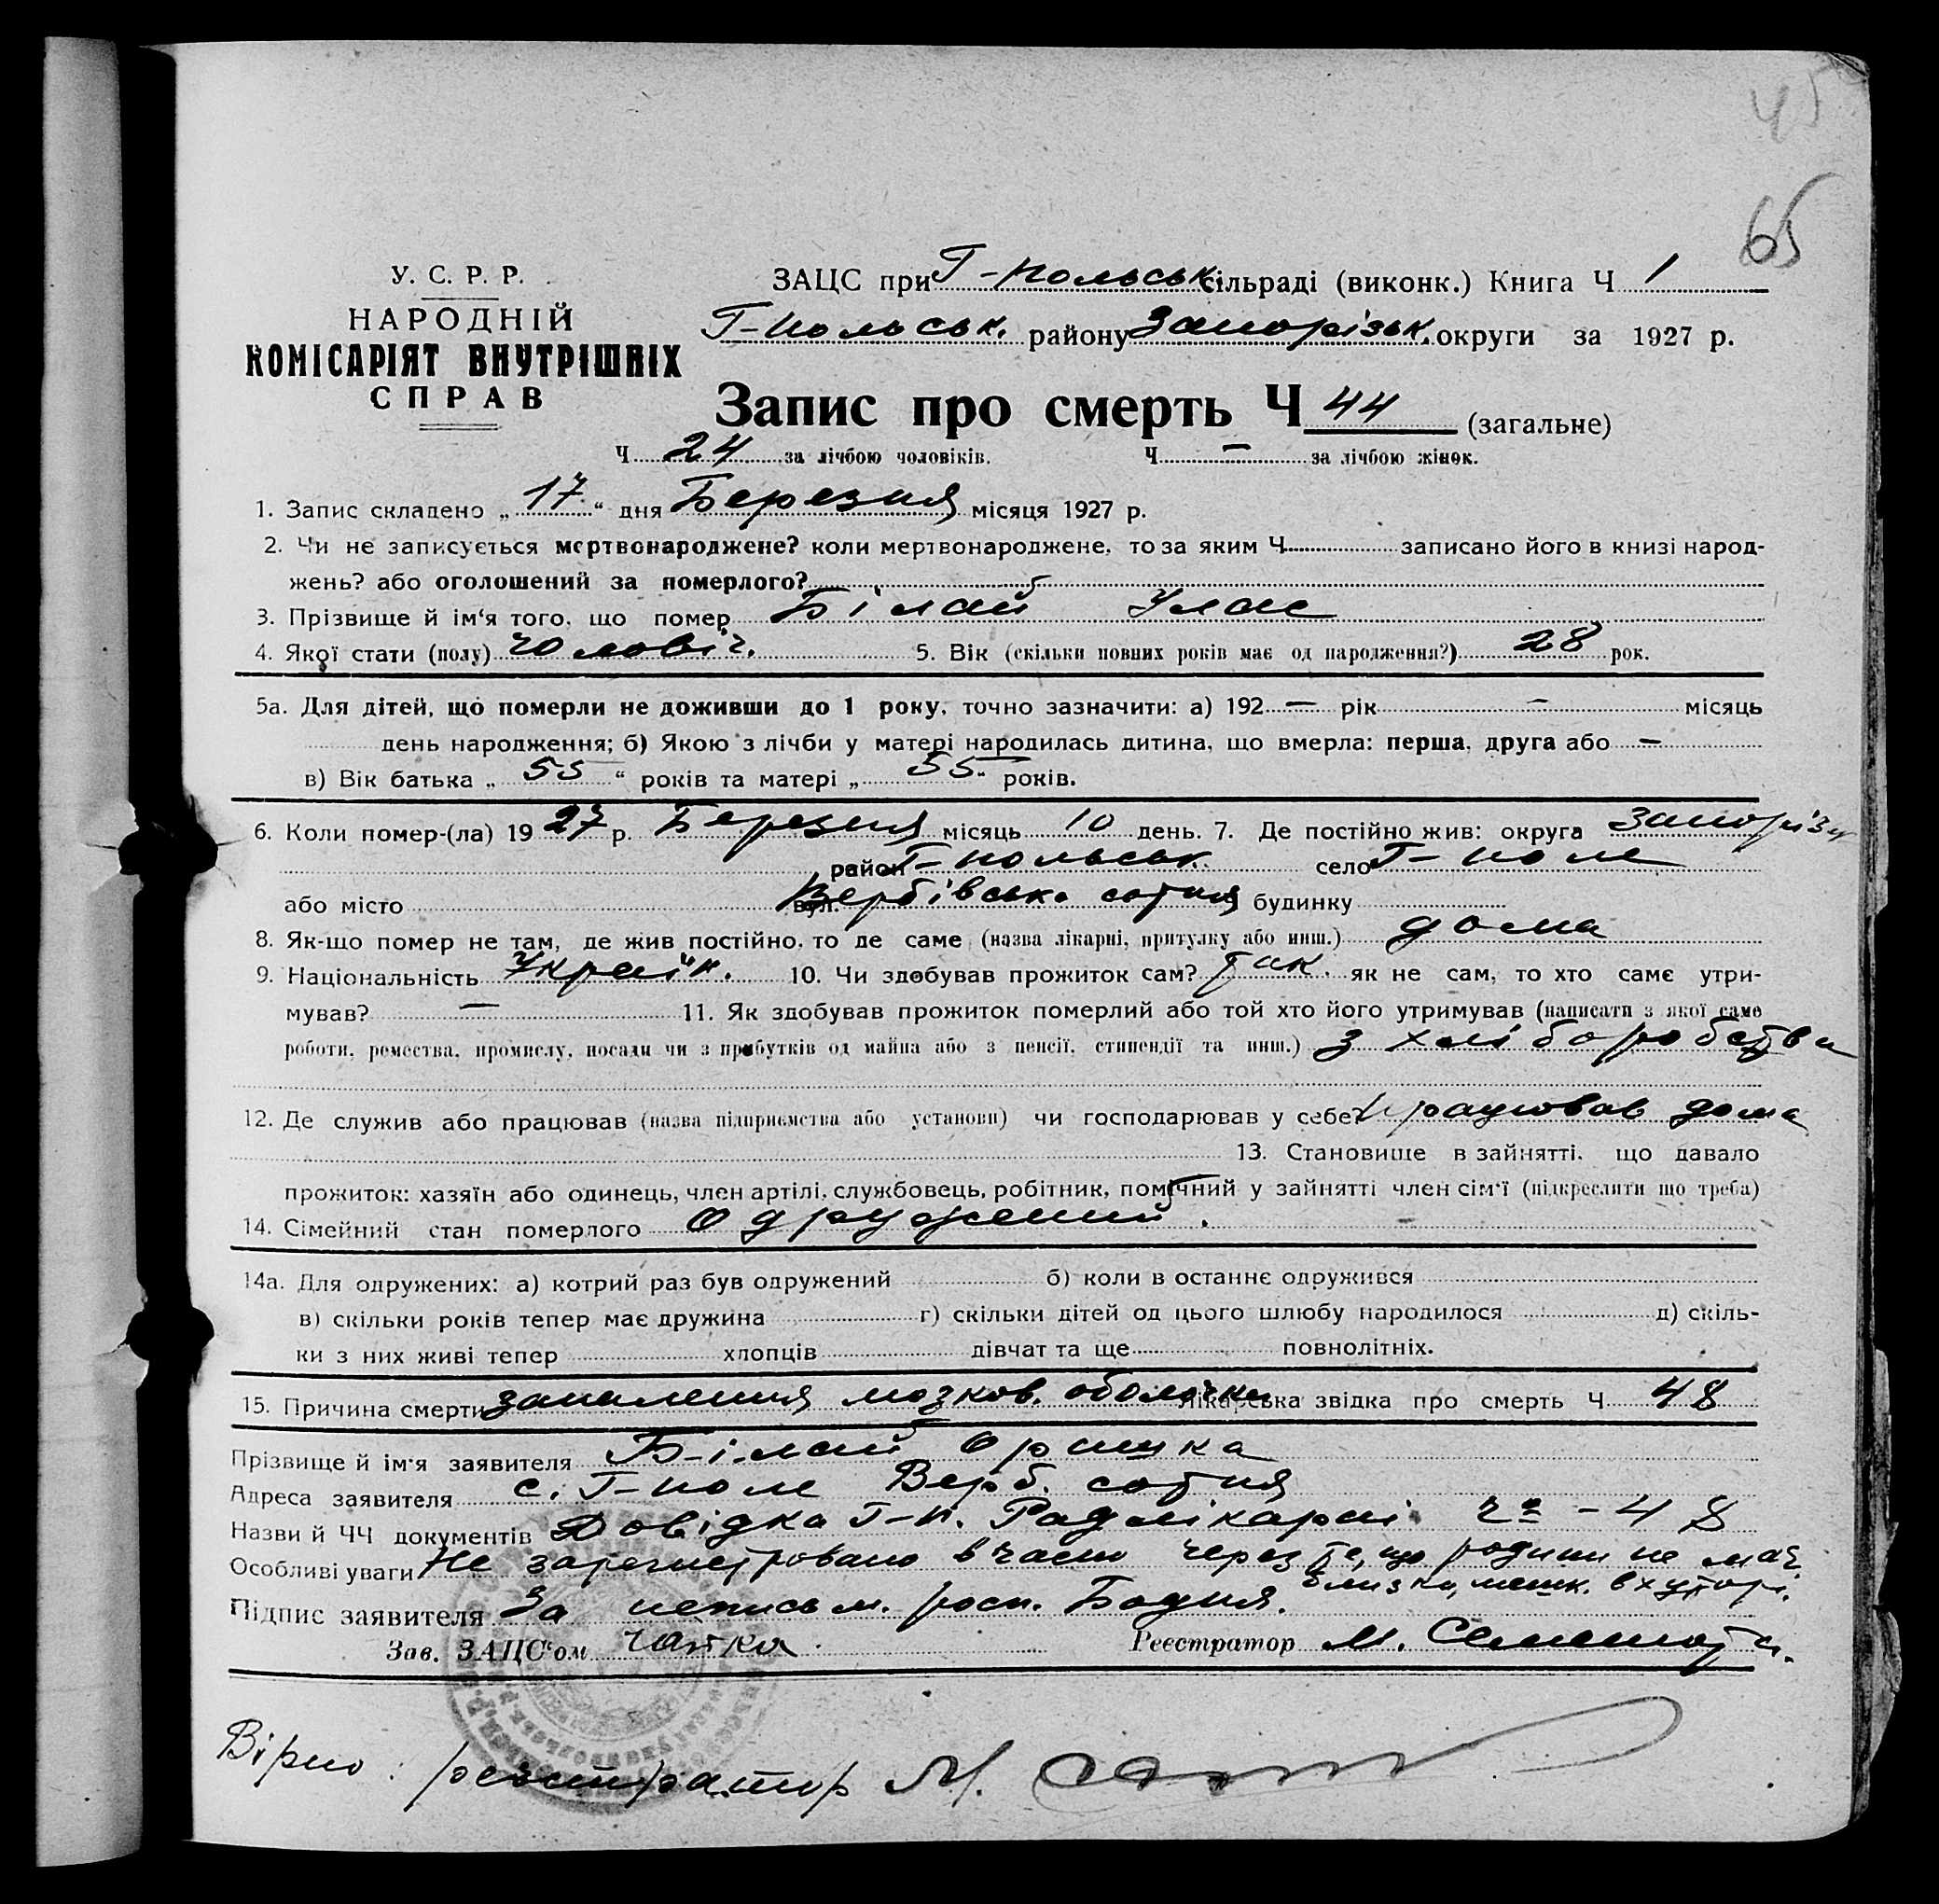 45
65
У. С. Р. Р.
НАРОДНІЙ
КОМІСАРІЯТ ВНУТРІШНІХ
СПРАВ
ЗАЦС при Г-польськ сільраді (виконк.) Книга Ч 1
Г-польськ. району Запорізьк. округи за 1927 р.
Запис про смерть Ч 44 (загальне)
Ч 24 за лічбою чоловіків. Ч — за лічбою жінок.
1. Запис складено „ 17 “ дня Березня місяця 1927 р.
2. Чи не записується мертвонароджене? коли мертвонароджене, то за яким Ч записано його в книзі народ-
жень? або оголошений за померлого?
3. Прізвище й ім‘я того, що помер Білай Улас
4. Якої стати (полу) чоловіч. 5. Вік (скільки повних років має од народження?) 28 рок.
5а. Для дітей, що померли не доживши до 1 року, точно зазначити: а) 192 — рік — місяць
день народження; б) Якою з лічби у матері народилась дитина, що вмерла: перша, друга або —
в) Вік батька „ 55 “ років та матері „ 55 “ років.
6. Коли помер-(ла) 19 27 р. Березня місяць 10 день. 7. Де постійно жив: округа Запорізь
район Г-польськ. село Г-поле
або місто вул. Вербівськ. сотня будинку
8. Як-що помер не там, де жив постійно, то де саме (назва лікарні, притулку або инш.) дома
9. Національність Україн. 10. Чи здобував прожиток сам? так. як не сам, то хто саме утри-
мував? — 11. Як здобував прожиток померлий або той хто його утримував (написати з якої саме
роботи, ремества, промислу, посади чи з прибутків од майна або з пенсії, стипендії та инш.) з хліборобства
12. Де служив або працював (назва підприємства або установи) чи господарював у себе? працював дома
13. Становище в зайнятті, що давало
прожиток: хазяїн або одинець, член артілі, службовець, робітник, помічний у зайнятті член сім‘ї (підкреслити що треба)
14. Сімейний стан померлого Одружений.
14а. Для одружених: а) котрий раз був одружений б) коли в останнє одружився
в) скільки років тепер має дружина г) скільки дітей од цього шлюбу народилося д) скіль-
ки з них живі тепер хлопців дівчат та ще повнолітніх.
15. Причина смерти запалення мозков. оболочки лікарська звідка про смерть Ч 48
Прізвище й ім‘я заявителя Білай Оришка
Адреса заявителя с. Г-поле Верб. сотня
Назви й ЧЧ документів Довідка Г-п. Рад лікарні Ч-48
Особливі уваги Не зарегистровано вчасно через те, що родини не має
близько, мешк. в хуторі.
Підпис заявителя За неписьм. росп. Бодня.
Зав. ЗАЦС‘ом Реєстратор М.
Вірно: реєстратор М.